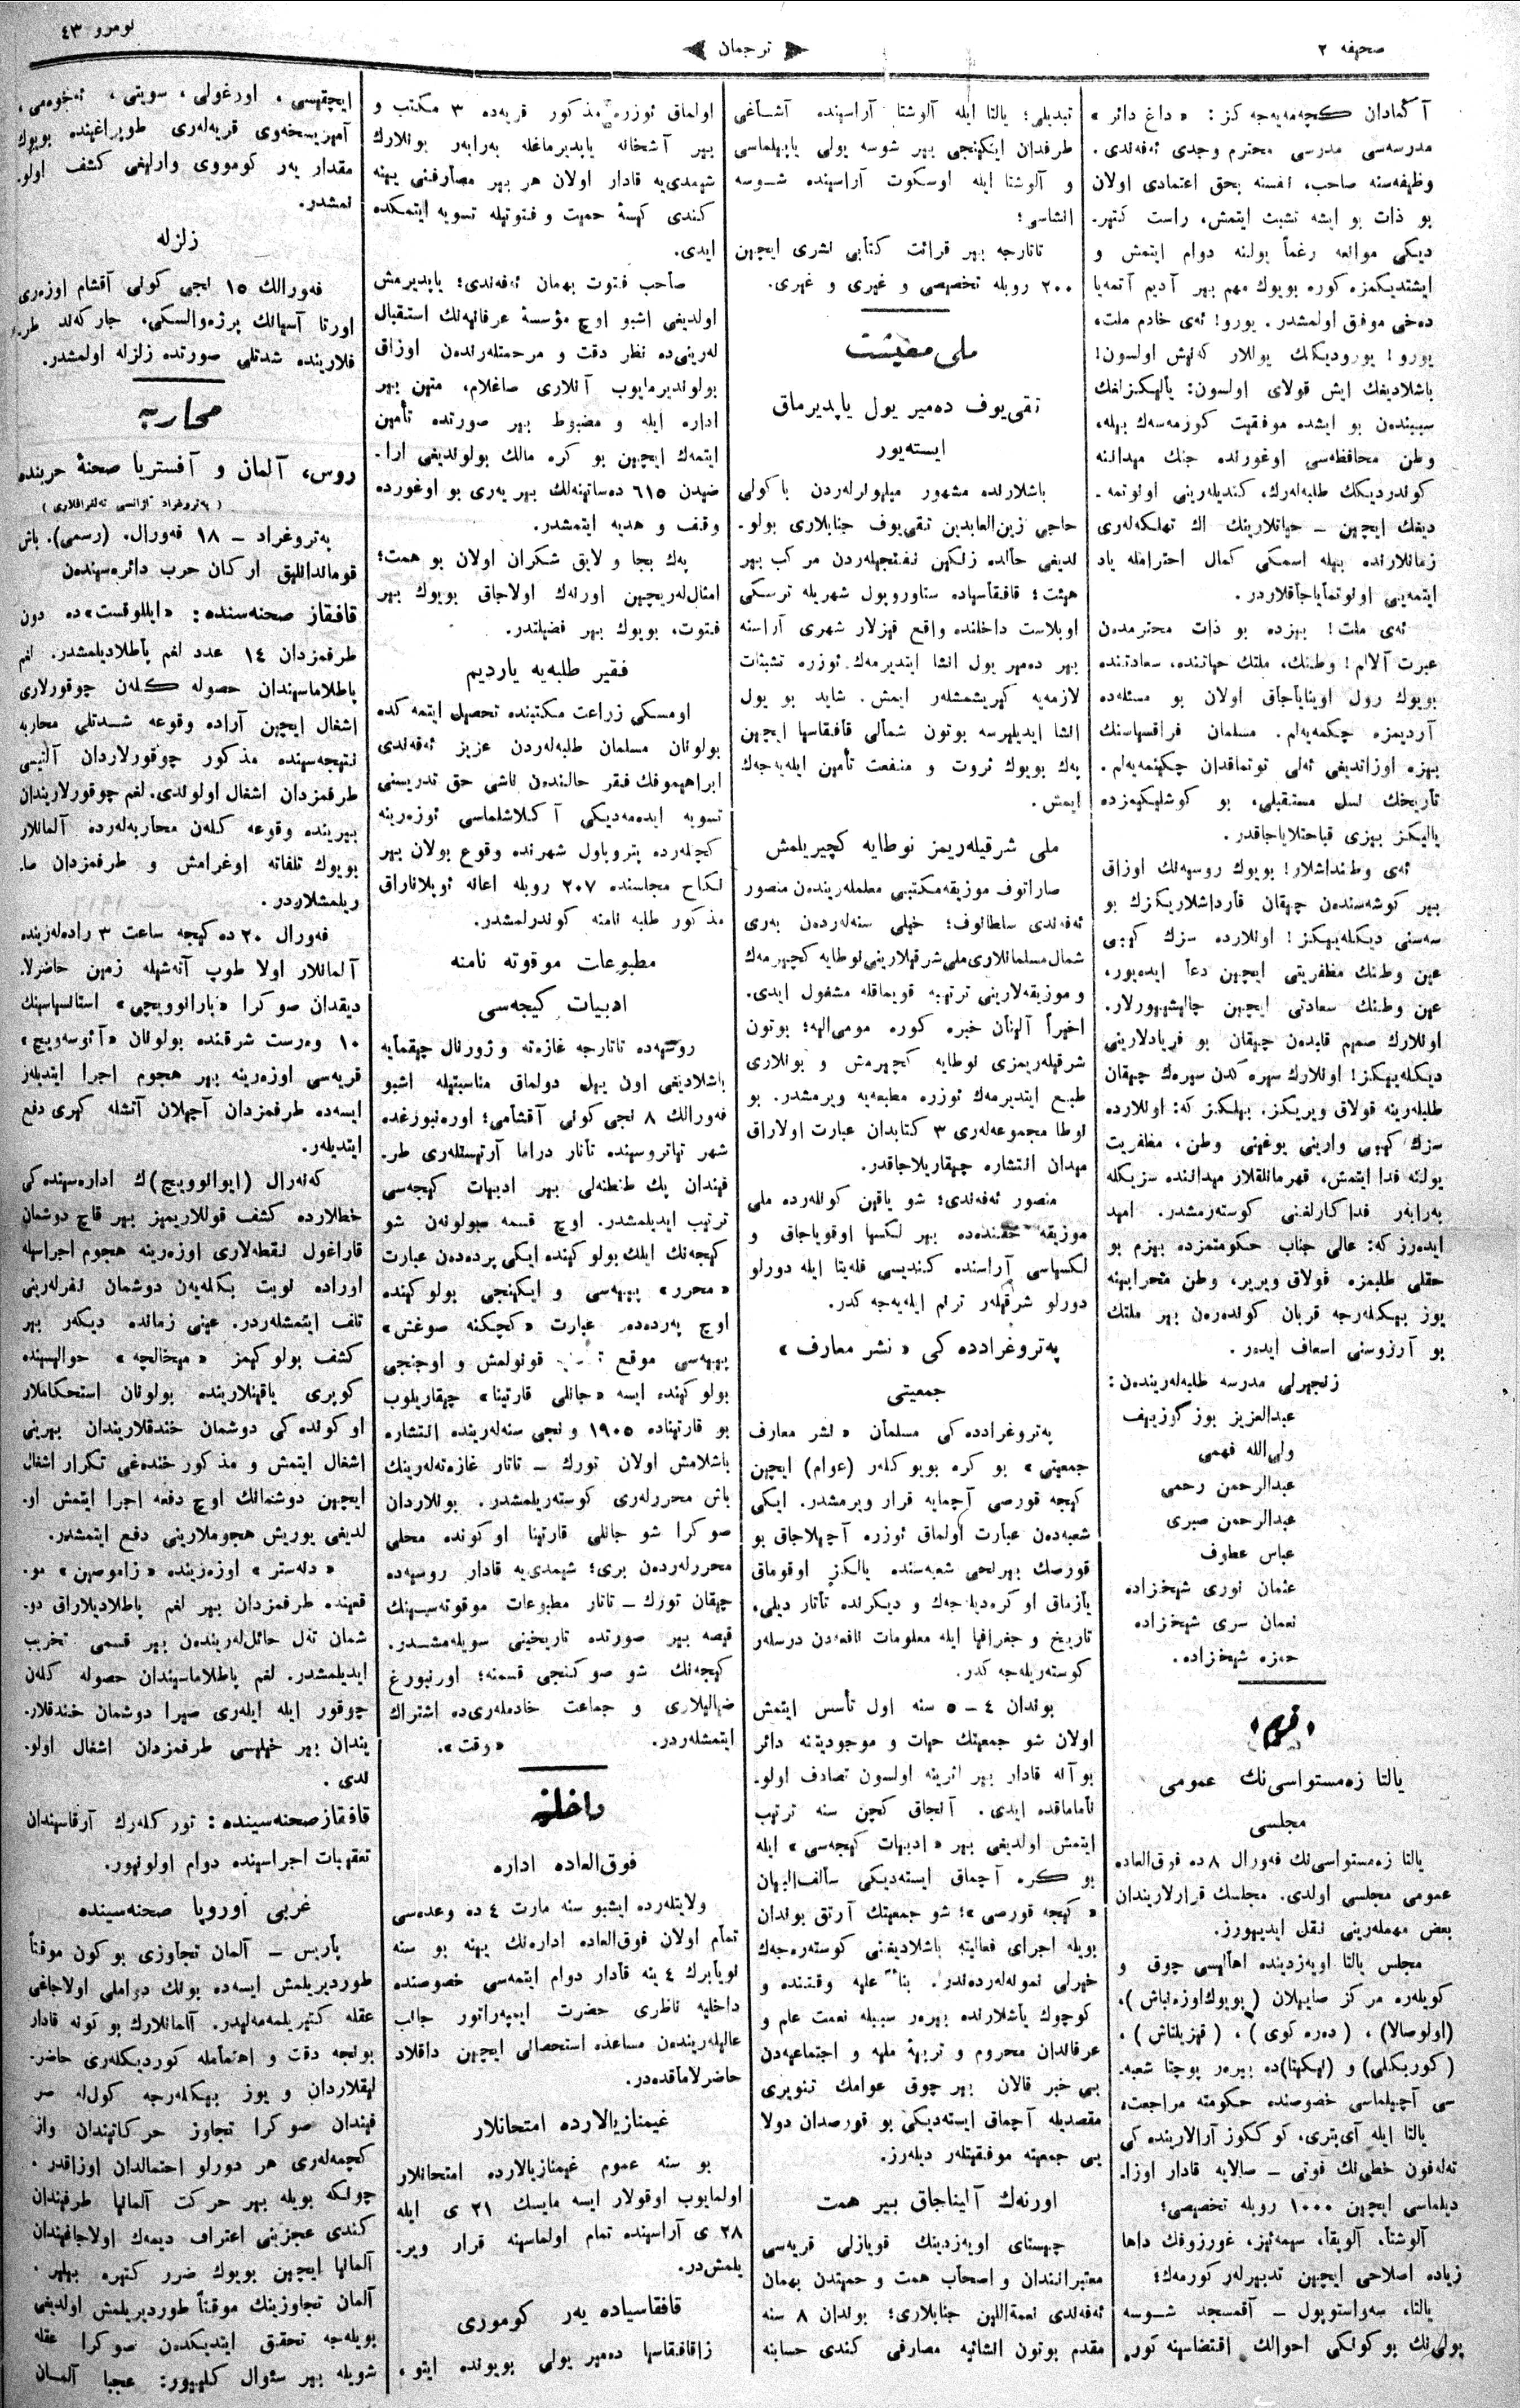 صحیفه ۲
ترجمان
نومرو ٤٣
آ كمادان كچه‌مه‌يه‌جه‌كز : « داغ دائر »
مدرسه‌سی مدرسی محترم وجدی ئه‌فه‌ندی.
وظیفه‌سنه صاحب، نفسنه بحق اعتمادی اولان
بو ذات بو ایشه تشبث ایتمش، راست كتیر-
دیكی موانعه رغماً یولنه دوام ایتمش و
ایشتدیكمزه كوره بویوك مهم بیر آدیم آتمه‌یا
ده‌خی موفق اولمشدر. یورو! ئه‌ی خادم ملت،
یورو! یورودیكك یوللار كه‌نیش اولسون!
باشلادیغك ایش قولای اولسون؛ یالیكزلغك
سببندن بو ایشده موفقیت كورمه‌سه‌ك بیله،
وطن محافظه‌سی اوغورنده جنك میداننه
كوندردیكك طلبه‌لرك، كندیله‌رینی اونوتمه-
دیغك ایچین – حیاتلارینك اك تهلكه‌لی
زمانلارنده بیله اسمكی كمال احترامله یاد
ایتمه‌یی اونوتمایاجاقلاردر.
ئه‌ی ملت! بیزده بو ذات محترمدن
عبرت آلالم! وطنك، ملتك حیاتنده، سعادتنده
بویوك رول اوینایاجاق اولان بو مسئله‌ده
آردیمزه چكمه‌یه‌لم. مسلمان فراقسیاسنك
بیزه اوزاتدیغی ئه‌لی توتماقدان چكینمه‌یه‌لم.
تاریخك نسل مستقبلی، بو كوشلیكیمزده
یالیكز بیزی قباحتلایاجاقدر.
ئه‌ی وطنداشلار! بویوك روسیه‌نك اوزاق
بیر كوشه‌سندن چیقان قارداشلاریكزك بو
سه‌سنی دیكله‌یكز! اونلارده سزك كیبی
عین وطنك مظفریتی ایچین دعا ایده‌یور،
عین وطنك سعادتی ایچین چالیشیورلار.
اونلارك صمیم قلبدن چیقان بو فریادلارینی
دیكله‌یكز! اونلارك سیره كدن سیره‌ك چیقان
طلبلرینه قولاق ویریكز. بیلكز كه: اونلارده
سزك كیبی وارینی یوغینی وطن، مظفریت
یولنه فدا ایتمش، قهرمانلقلار میداننده سزیكله
به‌رابه‌ر فداكارلغنی كوسته‌رمشدر. امید
ایده‌رز كه: عالی جناب حكومتمزده بیزم بو
حقلی طلبمزه قولاق ویریر، وطن محرابینه
یوز بیكله‌رجه قربان كونده‌رن بیر ملتك
بو آرزوسنی اسعاف ایده‌ر.
زنجیرلی مدرسه طلبه‌له‌ریندن:
عبدالعزیز بوز كوزییف
ولی‌الله فهمی
عبدالرحمن رحمی
عبدالرحمن صبری
عباس عطوف
عثمان نوری شیخزاده
نعمان سری شیخزاده
حمزه شیخزاده.
قریم
یالتا زه‌مستواسی‌نك عمومی
مجلسی
یالتا زه‌مستواسی‌نك فه‌ورال ٨ ده فوق‌العاده
عمومی مجلسی اولدی. مجلسك قرارلاریندان
بعض مهمله‌رینی نقل ایدییورز.
مجلس یالتا اویه‌زدینده اهالیسی چوق و
كویله‌ره مركز صاییلان (بویوك‌اوزه‌نباش)،
(اولوصالا)، (ده‌ره كوی)، (قیزیلتاش)،
(كوربكلی) و (لیكینا)ده بیره‌ر پوچتا شعبه-
سی آچیلماسی خصوصنده حكومته مراجعت؛
یالتا ایله آی‌پتری، كوككوز آرالارینده‌كی
ته‌له‌فون خطی‌نك فوتی – صالایه قادار اوزا-
دیلماسی ایچین ۱۰۰۰ روبله تخصیصی؛
آلوشتا، آلوپقا، سیمه‌ئیز، غورزوفك داها
زیاده اصلاحی ایچین تدبیرلر كورمه‌ك؛
یالتا، سه‌واستوپول – آقمسجد شوسه
یولی‌نك بو كونكی احوالك اقتضاسینه كوره
تبدیلی؛ یالتا ایله آلوشتا آراسینده آشاغی
طرفدان ایكینجی بیر شوسه یولی یاپیلماسی
و آلوشتا ایله اوسكوت آراسینده شوسه
انشاسی؛
تاتارجه بیر قرائت كتابی نشری ایچین
۲۰۰ روبله تخصیصی و غیری و غیری.
ملی معیشت
تقی‌یوف ده‌میر یول یاپدیرماق
ایسته‌یور
باشلارنده مشهور میلیونرلردن باكولی
حاجی زین‌العابدین تقی‌یوف جنابلاری بولو-
لدیغی حالده زنكین نفتجیلردن مركب بیر
هیئت؛ قافقاسیاده ستاوروپول شهریله ترسكی
اوبلاست داخلنده واقع قیزلار شهری آراسنه
بیر ده‌میر یول انشا ایتدیرمه‌ك ئوزره تشبثات
لازمه‌یه كیریشمشلر ایمش. شاید بو یول
انشا ایدیلیرسه بوتون شمالی قافقاسیا ایچین
په‌ك بویوك ثروت و منفعت تأمین ایله‌یه‌جه‌ك
ایمش.
ملی شرقیله‌ریمز نوطایه كچیریلمش
صاراتوف موزیقه‌مكتبی معلمله‌ریندن منصور
ئه‌فه‌ندی سلطانوف؛ خیلی سنه‌لردن به‌ری
شمال مسلمانلاری ملی شرقیلارینی نوطایه كچیرمه‌ك
و موزیقه‌لارینی ترتیبه قویماقله مشغول ایدی.
اخیراً آلینان خبره كوره مومی‌الیه؛ بوتون
شرقیله‌ریمزی نوطایه كچیرمش و بونلاری
طبع ایتدیرمه‌ك ئوزره مطبعه‌یه ویرمشدر. بو
نوطا مجموعه‌له‌ری ۳ كتابدان عبارت اولاراق
میدان انتشاره چیقاریلاجاقدر.
منصور ئه‌فه‌ندی؛ شو یاقین كونلرده ملی
موزیقه حقنده‌ده بیر لكسیا اوقویاجاق و
لكسیاسی آراسنده كندیسی فله‌یتا ایله دورلو
دورلو شرقیلر ترنم ایله‌یه‌جه‌كدر.
په‌تروغرادده‌كی « نشر معارف »
جمعیتی
په‌تروغرادده‌كی مسلمان « نشر معارف
جمعیتی » بو كره بویوكلر (عوام) ایچین
كیجه قورصی آچمایه قرار ویرمشدر. ایكی
شعبه‌دن عبارت اولماق ئوزره آچیلاجاق بو
قورصك بیرنجی شعبه‌سنده یالكز اوقوماق
یازماق اوكره‌دیله‌جه‌ك و دیكرنده تاتار دیلی،
تاریخ و جغرافیا ایله معلومات نافعه‌دن درسلر
كوسته‌ریله‌جه‌كدر.
بوندان ٤ – ٥ سنه اول تأسس ایتمش
اولان شو جمعیتك حیات و موجودیتنه دائر
بو آنه قادار بیر اثرینه اولسون تصادف اولو-
نماماقده ایدی. آنجاق كچن سنه ترتیب
ایتمش اولدیغی بیر « ادبیات كیجه‌سی » ایله
بو كره آچماق ایسته‌دیكی سالف‌البیان
« كیجه قورصی »؛ شو جمعیتك آرتق بوندان
بویله اجرای فعالیته باشلادیغنی كوسته‌ره‌جه‌ك
خیرلی نمونه‌لرده‌ندر. بناءً علیه وقتنده و
كوچوك یاشلارنده بیره‌ر سببله نعمت علم و
عرفاندان محروم و تربیهٔ ملیه و اجتماعیه‌دن
بی خبر قالان بیر چوق عوامك تنویری
مقصدیله آچماق ایسته‌دیكی بو قورصدان دولا
یی جمعیته موفقیتلر دیله‌رز.
اورنه‌ك آلیناجاق بیر همت
چیستای اویه‌زدینك قویازلی قریه‌سی
معتبرانندان و اصحاب همت و حمیتدن بهمان
ئه‌فه‌ندی نعمةاللین جنابلاری؛ بوندان ٨ سنه
مقدم بوتون انشائیه مصارفی كندی حسابنه
اولماق ئوزره مذكور قریه‌ده ۳ مكتب و
بیر آشخانه یاپدیرماغله به‌رابه‌ر بونلارك
شیمدی‌یه قادار اولان هر بیر مصارفنی ینه
كندی كیسهٔ حمیت و فتوتیله تسویه ایتمكده
ایدی.
صاحب فتوت بهمان ئه‌فه‌ندی؛ یاپدیرمش
اولدیغی اشبو اوچ مؤسسهٔ عرفانیه‌نك استقبال
له‌رینی‌ده نظر دقت و مرحمتله‌رندن اوزاق
بولوندیرمایوب آنلاری صاغلام، متین بیر
اداره ایله و مضبوط بیر صورتده تأمین
ایتمه‌ك ایچین بو كره مالك بولوندیغی ارا-
ضیدن ٦۱٥ ده‌ساتینه‌لك بیر یه‌ری بو اوغورده
وقف و هدیه ایتمشدر.
په‌ك بجا و لایق شكران اولان بو همت؛
امثال‌له‌ریچین اورنه‌ك اولاجاق بویوك بیر
فتوت، بویوك بیر فضیلتدر.
فقیر طلبه‌یه یاردیم
اومسكی زراعت مكتبنده تحصیل ایتمه‌كده
بولونان مسلمان طلبه‌لردن عزیز ئه‌فه‌ندی
ابراهیموفك فقر حالندن ناشی حق تدریسنی
تسویه ایده‌مه‌دیكی آكلاشلماسی ئوزه‌رینه
كچنلرده پتروپاول شهرنده وقوع بولان بیر
نكاح مجلسنده ۲۰۷ روبله اعانه توپلاناراق
مذكور طلبه نامنه كوندرلمشدر.
مطبوعات موقوته نامنه
ادبیات كیجه‌سی
روسیه‌ده تاتارجه غازه‌ته و ژورنال چیقمایه
باشلادیغی اون ییل دولماق مناسبتیله اشبو
فه‌ورالك ٨ نجی كونی آقشامی؛ اوره‌نبورغده
شهر تیاتروسینده تاتار دراما آرتیستله‌ری طر-
فیندان پك طنطنه‌لی بیر ادبیات كیجه‌سی
ترتیب ایدیلمشدر. اوچ قسمه بولونن شو
كیجه‌نك ایلك بولوكینده ایكی پرده‌دن عبارت
« محرر » پییه‌سی و ایكینجی بولوكینده
اوچ په‌رده‌دن عبارت « كچكنه صوغش »
پییه‌سی موقع قونولمش و اوچنجی
بولوكینده ایسه « جانلی قارتینا » چیقاریلوب
بو قارتیناده ۱۹۰٥ ونجی سنه‌له‌رینده انتشاره
باشلامش اولان تورك – تاتار غازه‌ته‌له‌رینك
باش محررله‌ری كوسته‌ریلمشدر. بونلاردان
صوكرا شو جانلی قارتینا اوكونده محلی
محررله‌ردن بری؛ شیمدی‌یه قادار روسیه‌ده
چیقان تورك – تاتار مطبوعات موقوته‌سینك
قیصه بیر صورتده تاریخینی سویله‌مشدر.
كیجه‌نك شو صوكنجی قسمنه؛ اورنبورغ
ضیالیلاری و جماعت خادمله‌ری‌ده اشتراك
ایتمشله‌ردر. « وقت ».
داخلیه
فوق‌العاده اداره
ولایتله‌رده ایشبو سنه مارت ٤ ده وعده‌سی
تمام اولان فوق‌العاده اداره‌نك ینه بو سنه
نویابرك ٤ ینه قادار دوام ایتمه‌سی خصوصنده
داخلیه ناظری حضرت ایمپه‌راتور جانب
عالیله‌ریندن مساعده استحصالی ایچین داقلاد
حاضرلاماقده‌در.
غیمنازیالارده امتحانلار
بو سنه عموم غیمنازیالارده امتحانلار
اولمایوب اوقولار ایسه مایسك ۲۱ ی ایله
۲٨ ی آراسینده تمام اولماسینه قرار ویر-
یلمش‌در.
قافقاسیاده یه‌ر كوموری
زاقافقاسیا ده‌میر یولی بویونده ایتو،
ایچقیسی، اورغولی، سویتی، ئه‌خوه‌می،
آمیزیسخه‌وی قریه‌له‌ری طوپراغینده بویوك
مقدار یه‌ر كومووی وارلیغی كشف اولو-
نمشدر.
زلزله
فه‌ورالك ۱٥ نجی كونی آقشام اوزه‌ری
اورتا آسیانك پرژه‌والسكی، جاركه‌ند طر-
فلارینده شدتلی صورتده زلزله اولمشدر.
محاربه
روس، آلمان و آفستریا صحنهٔ حربنده
( په‌تروغراد آژانسی ته‌لغرافلاری )
په‌تروغراد – ۱٨ فه‌ورال. (رسمی). باش
قومانداللیق اركان حرب دائره‌سیندن
قافقاز صحنه‌سنده: « ایللوقست »ده دون
طرفمزدان ۱٤ عدد لغم پاطلادیلمشدر. لغم
پاطلاماسیندان حصوله كلن چوقورلاری
اشغال ایچین آراده وقوعه شدتلی محاربه
نتیجه‌سینده مذكور چوقورلاردان آلتیسی
طرفمزدان اشغال اولوندی. لغم چوقورلاریندان
بیرینده وقوعه كلن محاربه‌لرده آلمانلار
بویوك تلفاته اوغرامش و طرفمزدان صا-
ریلمشلاردر.
فه‌ورال ۲۰ ده كیجه ساعت ۳ راده‌له‌رینده
آلمانلار اولا طوپ آته‌شیله زمین حاضرلا-
دیقدان صوكرا « بارانوویچی » استانسیاسینك
۱۰ وه‌رست شرقنده بولونان « آئوسه‌ویچ »
قریه‌سی اوزه‌رینه بیر هجوم اجرا ایتدیلر
ایسه‌ده طرفمزدان آچیلان آتشله كیری دفع
ایتدیلر.
كه‌نه‌رال (ایوانوویچ)ك اداره‌سینده‌كی
خطلارده كشف قوللاریمز بیر قاچ دوشمان
قاراغول نقطه‌لاری اوزه‌رینه هجوم اجراسیله
اوراده نوبت بكله‌یه‌ن دوشمان نفرله‌رینی
تلف ایتمشله‌ردر. عینی زمانده دیكه‌ر بیر
كشف بولوكیمز « میخالچه » حوالیسینده
كوپری یاقینلارینده بولونان استحكاملار
اوكونده‌كی دوشمان خندقلاریندان بیرینی
اشغال ایتمش و مذكور خندغی تكرار اشغال
ایچین دوشمانك اوچ دفعه اجرا ایتمش او-
لدیغی یوریش هجوملارینی دفع ایتمشدر.
« دنه‌ستر » اوزه‌رینده « زاموصین » مو-
قعینده طرفمزدان بیر لغم پاطلادیلاراق دو-
شمان تل حائل‌له‌ریندن بیر قسمی تخریب
ایدیلمشدر. لغم پاطلاماسیندان حصوله كلن
چوقور ایله ایله‌ری صیرا دوشمان خندقلار-
یندان بیر خیلیسی طرفمزدان اشغال اولو-
ندی.
قافقاز صحنه‌سینده: توركلرك آرقاسیندان
تعقیبات اجراسینده دوام اولونیور.
غربی آوروپا صحنه‌سینده
پاریس – آلمان تجاوزی بو كون موقتاً
طوردیریلمش ایسه‌ده بونك دواملی اولاجاغی
عقله كتیریلمه‌مه‌لیدر. آلمانلارك بو كونه قادار
بونجه دقت و اهتمامله كوردیكله‌ری حاضر-
لیقلاردان و یوز بیكله‌رجه كولله صر
فیندان صوكرا تجاوز حركاتیندان واز
كچمه‌له‌ری هر دورلو احتمالدان اوزاقدر.
چونكه بویله بیر حركت آلمانیا طرفیندان
كندی عجزینی اعتراف دیمه‌ك اولاجاغیندان
آلمانیا ایچین بویوك ضرر كتیره بیلیر.
آلمان تجاوزینك موقتاً طوردیریلمش اولدیغی
بویله‌جه تحقق ایتدیكدن صوكرا عقله
شویله بیر سئوال كلییور: عجبا آلمان